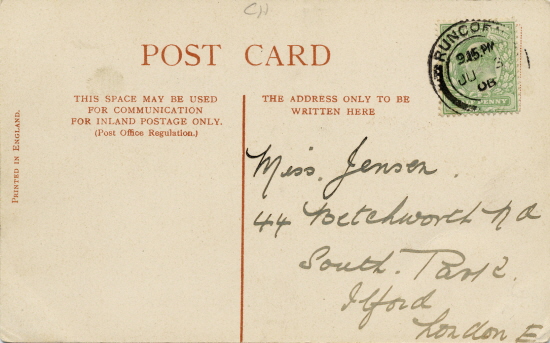 CN
POST CARD
THIS SPACE MAY BE USED
FOR COMMUNICATION
FOR INLAND POSTAGE ONLY.
(Post Office Regulation.)
THE ADDRESS ONLY TO BE
WRITTEN HERE
PRINTED IN ENGLAND.
RUNCORN
9.15 PM
JU
08
PENNY
Miss. Jensen.
44 Betchworth Rd
South. Park.
Ilford
London E